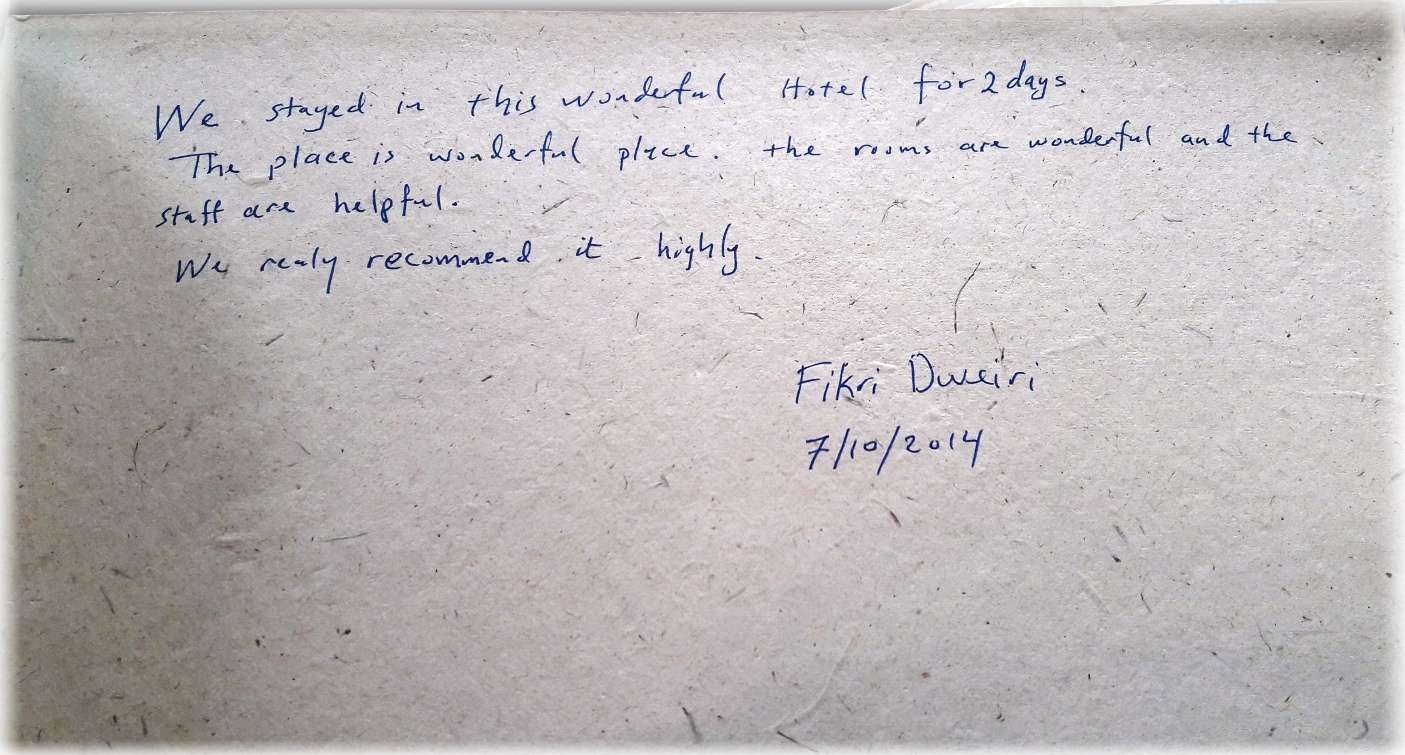 We stayed in this wonderful Hotel for 2 days.
The place is wonderful place. the rooms are wonderful and the
staff are helpful.
We realy recommend it highly.
Fikri Dweiri
7/10/2014